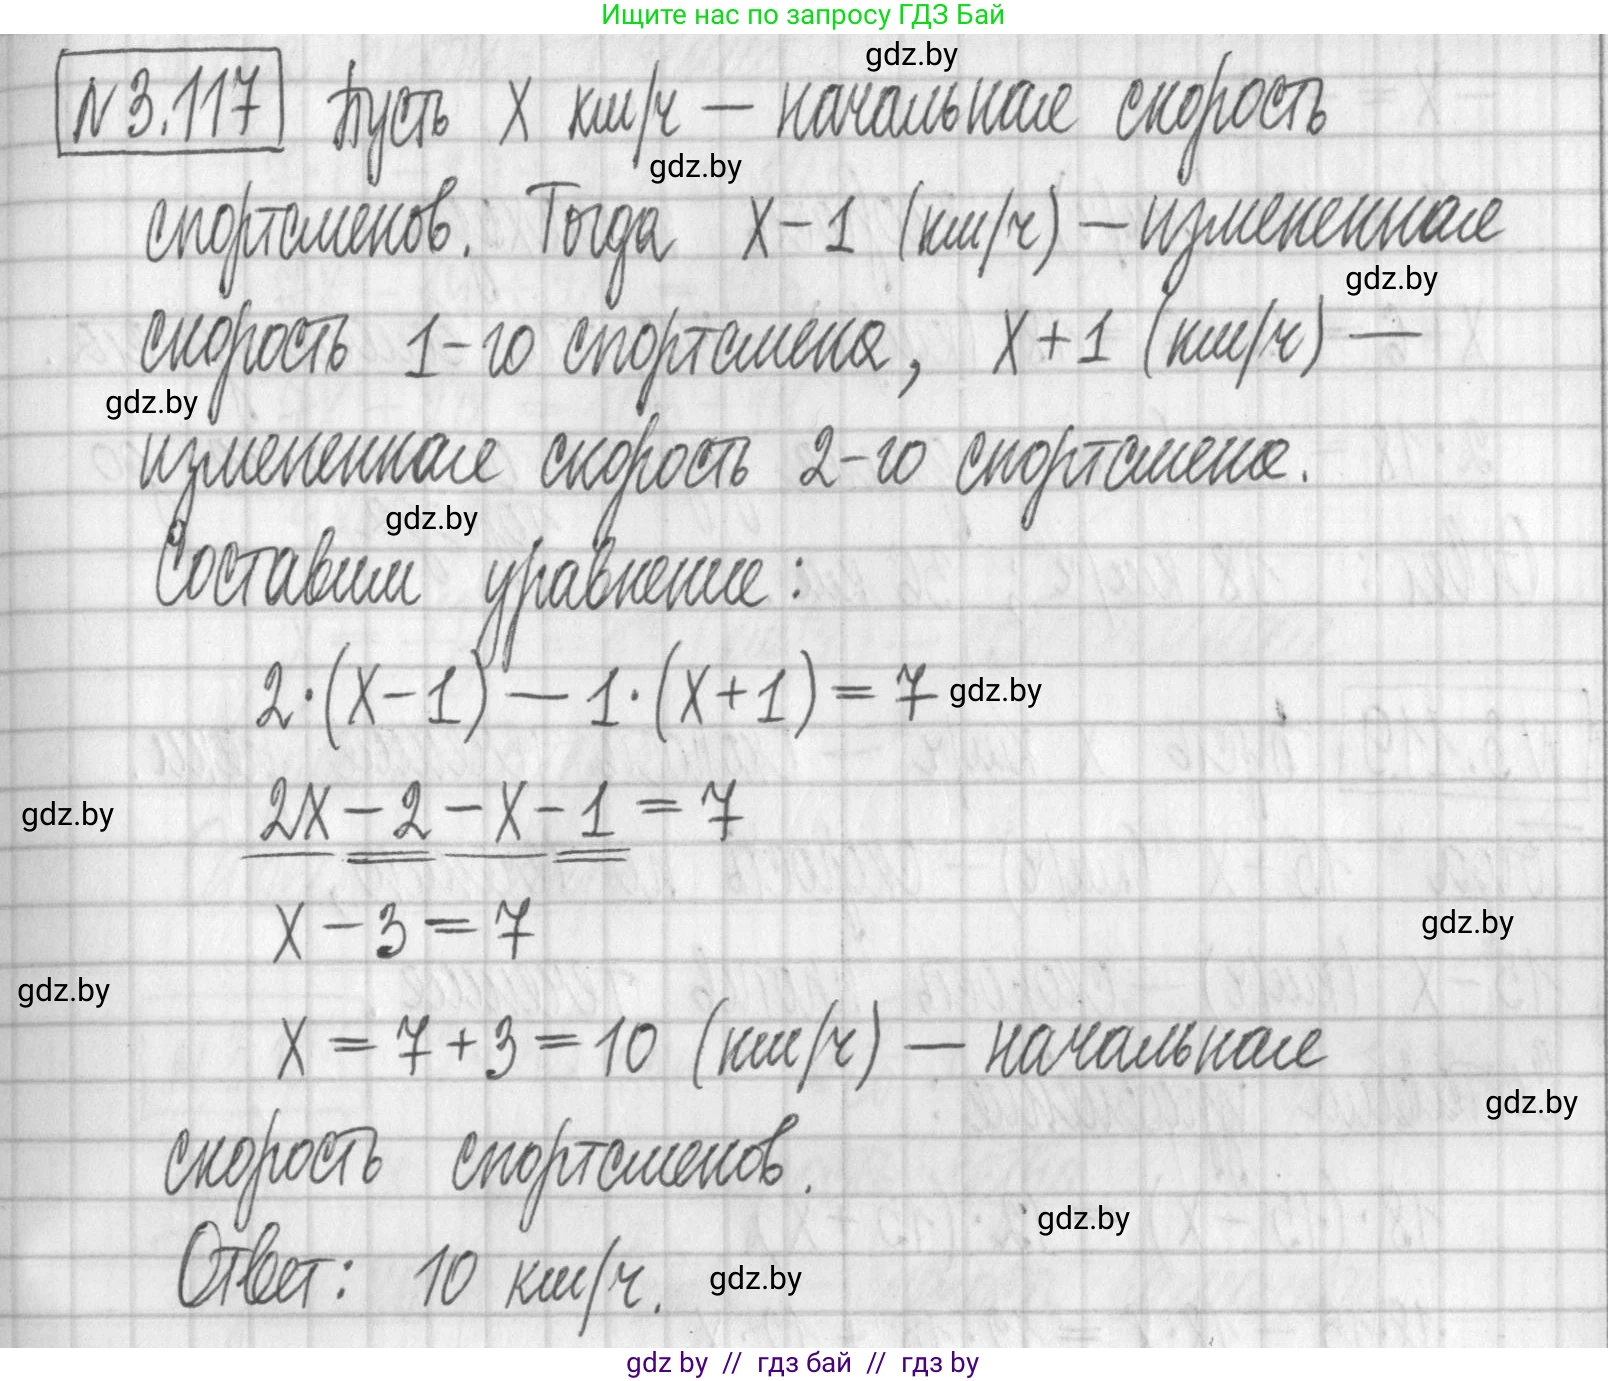 Ищите нас по запросу ГДЗ Бай
gdz.by
№3.117 Пусть x км/ч — начальная скорость
gdz.by
спортсменов. Тогда x-1 (км/ч) — измененная
gdz.by
скорость 1-го спортсмена, x+1 (км/ч) —
gdz.by
измененная скорость 2-го спортсмена.
gdz.by
Составим уравнение:
2·(x-1) - 1·(x+1) = 7 gdz.by
gdz.by 2x - 2 - x - 1 = 7
x - 3 = 7 gdz.by
gdz.by
x = 7 + 3 = 10 (км/ч) — начальная
gdz.by
скорость спортсменов.
gdz.by
Ответ: 10 км/ч. gdz.by
gdz by // гдз бай // гдз by